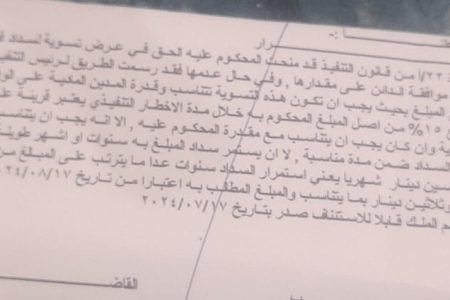 :-
رار
٢٢٤/أ من قانون التنفيذ قد منحت المحكوم عليه الحق في عرض تسوية لسداد
موافقة الدائن على مقدارها , وفي حال عدمها فقد رسمت الطريق لرئيس التنفيذ
المبلغ بحيث يجب ان تكون هذه التسوية تتناسب وقدرة المدين المغيبة على
١٥% من اصل المبلغ المحكوم به خلال مدة الاخطار التنفيذي يعتبر قرينة
وان كان يجب ان يتناسب مع مقدرة المحكوم عليه , الا انه يجب ان
السداد ضمن مدة مناسبة , لا ان يستمر سداد المبلغ به سنوات او اشهر طويلة
سين دينار شهريا يعني استمرار السداد سنوات عدا ما يترتب على المبلغ من
وثلاثين دينار بما يتناسب والمبلغ المطالب به اعتبارا من تاريخ ٢٠٢٤/٠٨/١٧
م الملك قابلا للاستئناف صدر بتاريخ ٢٠٢٤/٠٧/١٧
القاضـ